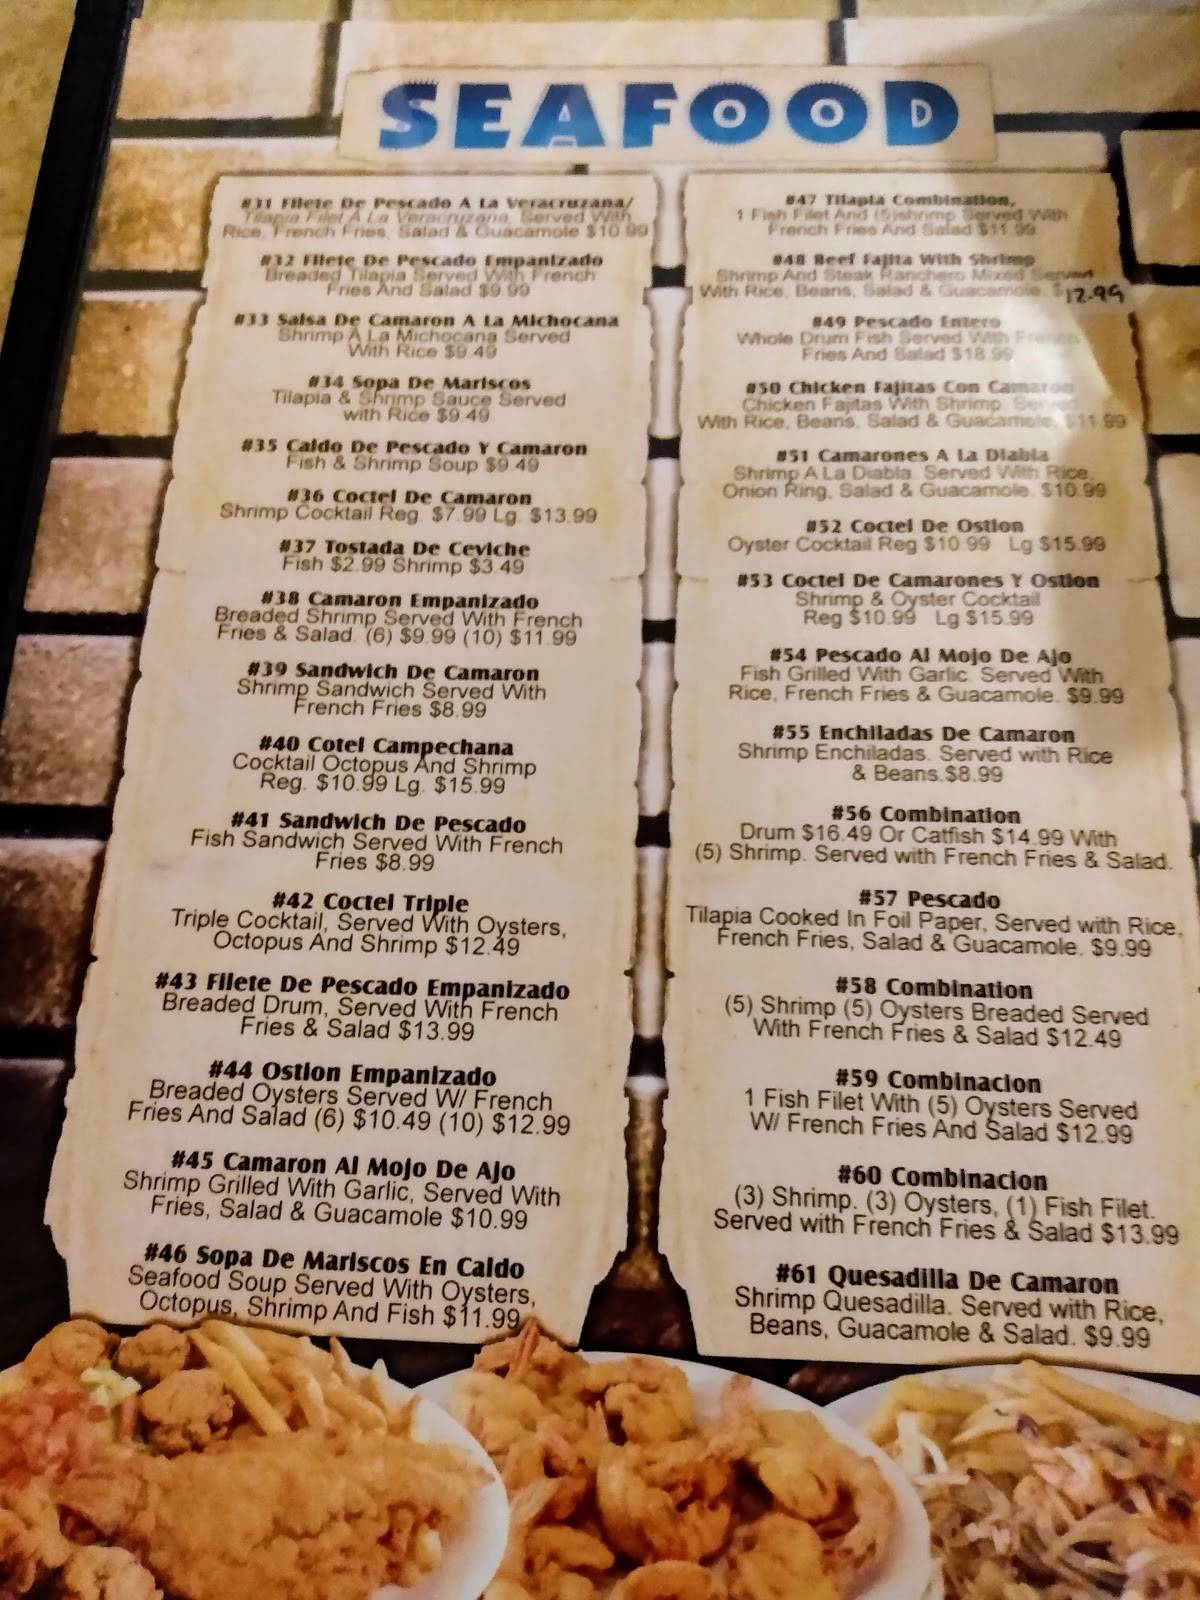 SEAFOOD
#31 Filete De Pescado A La Veracruzana/
Tilapia Filet A La Veracruzana, Served With
Rice, French Fries, Salad & Guacamole $10.99
#32 Filete De Pescado Empanizado
Breaded Tilapia Served With French
Fries And Salad $9.99
#33 Salsa De Camaron A La Michocana
Shrimp A La Michocana Served
With Rice $9.49
#34 Sopa De Mariscos
Tilapia & Shrimp Sauce Served
with Rice $9.49
#35 Caldo De Pescado Y Camaron
Fish & Shrimp Soup $9.49
#36 Coctel De Camaron
Shrimp Cocktail Reg. $7.99 Lg. $13.99
#37 Tostada De Ceviche
Fish $2.99 Shrimp $3.49
#38 Camaron Empanizado
Breaded Shrimp Served With French
Fries & Salad. (6) $9.99 (10) $11.99
#39 Sandwich De Camaron
Shrimp Sandwich Served With
French Fries $8.99
#40 Cotel Campechana
Cocktail Octopus And Shrimp
Reg. $10.99 Lg. $15.99
#41 Sandwich De Pescado
Fish Sandwich Served With French
Fries $8.99
#42 Coctel Triple
Triple Cocktail, Served With Oysters,
Octopus And Shrimp $12.49
#43 Filete De Pescado Empanizado
Breaded Drum, Served With French
Fries & Salad $13.99
#44 Ostion Empanizado
Breaded Oysters Served W/ French
Fries And Salad (6) $10.49 (10) $12.99
#45 Camaron Al Mojo De Ajo
Shrimp Grilled With Garlic, Served With
Fries, Salad & Guacamole $10.99
#46 Sopa De Mariscos En Caldo
Seafood Soup Served With Oysters,
Octopus, Shrimp And Fish $11.99
#47 Tilapia Combination,
1 Fish Filet And (5)shrimp Served With
French Fries And Salad $11.99
#48 Beef Fajita With Shrimp
Shrimp And Steak Ranchero Mixed Served
With Rice, Beans, Salad & Guacamole. $12.99
#49 Pescado Entero
Whole Drum Fish Served With French
Fries And Salad $18.99
#50 Chicken Fajitas Con Camaron
Chicken Fajitas With Shrimp. Served
With Rice, Beans, Salad & Guacamole. $11.99
#51 Camarones A La Diabla
Shrimp A La Diabla. Served With Rice,
Onion Ring, Salad & Guacamole. $10.99
#52 Coctel De Ostion
Oyster Cocktail Reg $10.99 Lg $15.99
#53 Coctel De Camarones Y Ostion
Shrimp & Oyster Cocktail
Reg $10.99 Lg $15.99
#54 Pescado Al Mojo De Ajo
Fish Grilled With Garlic. Served With
Rice, French Fries & Guacamole. $9.99
#55 Enchiladas De Camaron
Shrimp Enchiladas. Served with Rice
& Beans.$8.99
#56 Combination
Drum $16.49 Or Catfish $14.99 With
(5) Shrimp. Served with French Fries & Salad.
#57 Pescado
Tilapia Cooked In Foil Paper, Served with Rice,
French Fries, Salad & Guacamole. $9.99
#58 Combination
(5) Shrimp (5) Oysters Breaded Served
With French Fries & Salad $12.49
#59 Combinacion
1 Fish Filet With (5) Oysters Served
W/ French Fries And Salad $12.99
#60 Combinacion
(3) Shrimp. (3) Oysters, (1) Fish Filet.
Served with French Fries & Salad $13.99
#61 Quesadilla De Camaron
Shrimp Quesadilla. Served with Rice,
Beans, Guacamole & Salad. $9.99